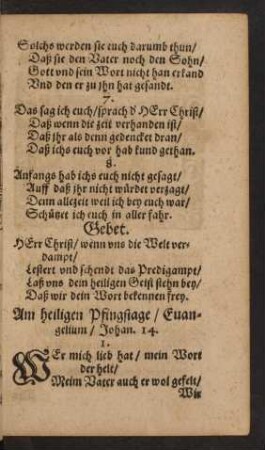 Solchs werden sie euch darumb thun/
Daß sie den Vater noch den Sohn/
Gott vnd sein Wort nicht han erkand
Vnd den er zu jhn hat gesandt.
7.
Das sag ich euch/sprach d' HErr Christ/
Daß wenn die zeit verhanden ist/
Daß jhr als denn gedencket dran/
Daß ichs euch vor hab kund gethan.
8.
Anfangs hab ichs euch nicht gesagt/
Auff daß ihr nicht würdet verzagt/
Denn allezeit weil ich bey euch war/
Schützet ich euch in aller fahr.
Gebet.
HErr Christ/ wenn vns die Welt ver-
dampt/
Lestert vnd schendt das Predigampt/
Laß vns dein heiligen Geist stehn bey/
Daß wir dein Wort bekennen frey.
Am heiligen Pfingstage/ Euan-
gelium/ Johan. 14.
1.
WEr mich lieb hat/ mein Wort
der helt/
Meim Vater auch er wol gefelt/
Wir